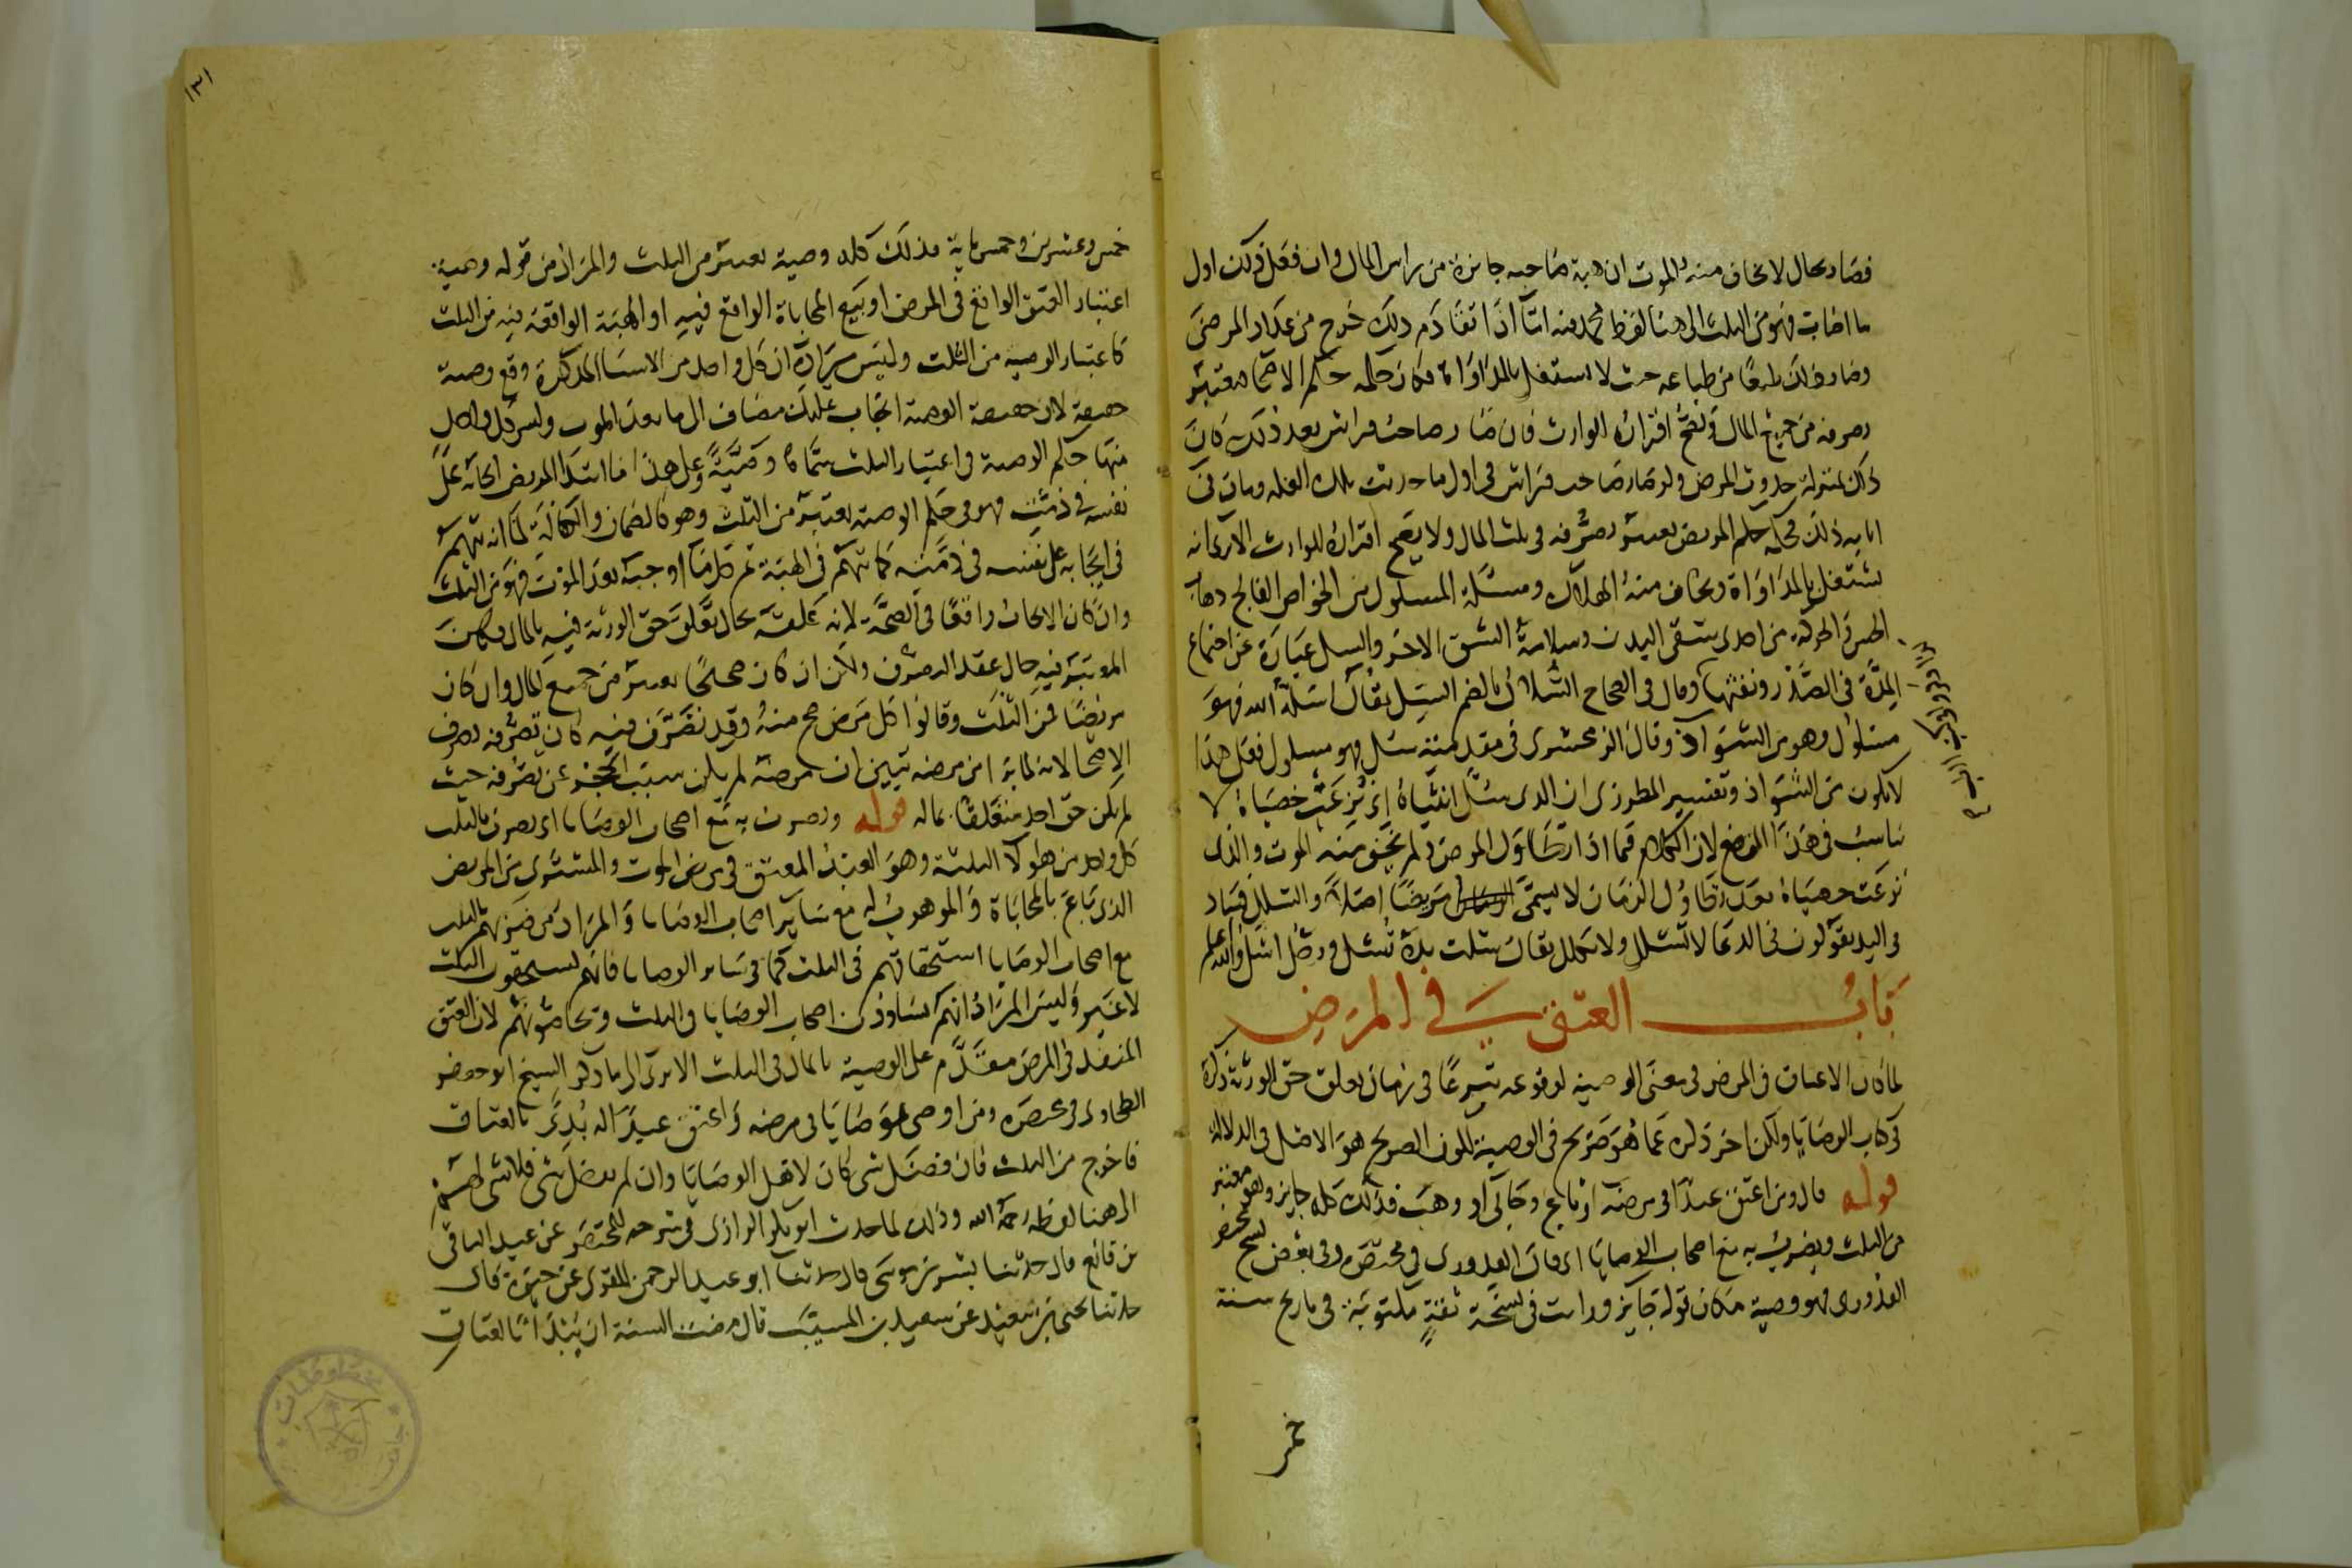 فصار بحال لا يخاف منه الموت ان هبة صاحبه جائزة من راس المال وان فعل ذلك اول
ما اصابه فهو من الثلث الى هنا لفظ محمد فيه اما اذا تقادم ذلك خرج من عداد المرضى
وصار ذلك طبعا من طباعه حيث لا يشتغل بالمداواة فكان حكمه حكم الاصحا معتبر
تصرفه من جميع المال ويصح اقراره للوارث فان صار صاحب فراش بعد ذلك كان
ذلك بمنزلة حدوث المرض ولو صار صاحب فراش في اول ما حدثت تلك العلة ومات في
ايامه ذلك فحكمه حكم المريض يعتبر تصرفه في ثلث المال ولا يصح اقراره للوارث الا ترى انه
يشتغل بالمداواة ويخاف منه الهلاك ومسئلة المسلول من الخواص الفالج ذهاب
الحس والحركة من احدى شقى البدن وسلامة الشق الاخر والسل عبارة عن اجتماع
المدة في الصدر ونفثها وقال في الصحاح السلال بالضم السل يقال اسله الله فهو
مسلول وهو من الشواذ وقال الزمخشرى في مقدمته سل فهو مسلول فعلى هذا
لا يكون من الشواذ وتفسير المطرزى ان الذى سل انثياه اى نزعت خصياه لا
يناسب في هذا الموضع لان الكلام فيما اذا تطاول المرض ولم يخف منه الموت والذى
نزعت خصياه بعد تطاول الزمان لا يسمى مريضا اصلا والشلل فساد
في اليد يقولون في الدعا لا تشلل ولا تكلل يقال شلت يده تشل ورجل اشل والله اعلم
باب العتق في المرض
لما كان الاعتاق في المرض في معنى الوصية لوقوعه تبرعا في زمان تعلق حق الورثة ذكره
في كتاب الوصايا ولكن اخر ذكره عما هو صريح في الوصية لكون الصريح هو الاصل في الدلالة
قوله قال ومن اعتق عبدا في مرضه او باع وحابى او وهب فذلك كله جايز وهو معتبر
من الثلث ويضرب به مع اصحاب الوصايا اى قال القدورى في مختصره وفي بعض نسخ مختصر
القدورى فهو وصية مكان قوله جايز ورايت في نسخة ثقة مكتوبة في تاريخ سنة
خمس
١٣١
خمس وعشرين وخمسماية فذلك كله وصية يعتبر من الثلث والمراد من قوله وصية
اعتبار العتق الواقع في المرض او بيع المحاباة الواقع فيه او الهبة الواقعة فيه من الثلث
كاعتبار الوصية من الثلث وليس يراد به ان كل واحد من الاشيا المذكورة وقع وصية
حقيقة لان حقيقة الوصية ايجاب تمليك مضاف الى ما بعد الموت وليس لكل واحد
منها حكم الوصية في اعتبار الثلث سماه وصية وعلى هذا ما ابتدا المريض ايجابه على
نفسه في ذمته فهو في حكم الوصية يعتبر من الثلث وهو كالضمان والكفالة لما انه يتهم
في ايجابه على نفسه في ذمته كما يتهم في الهبة ثم كل ما اوجبه بعد الموت فهو من الثلث
وان كان الايجاب واقعا في الصحة لانه علقه بحال تعلق حق الورثة فيه بالمال ولكن
المعتبر فيه حال عقد التصرف ولكن ان كان صحيحا يعتبر من جميع المال وان كان
مريضا فمن الثلث وقالوا كل مرض صح منه وقد تصرف فيه كان تصرفه تصرف
الاصحا لانه لما برا من مرضه تبين ان مرضه لم يكن سبب الحجر عن تصرفه حيث
لم يكن حق احد متعلقا بماله قوله ويضرب به مع اصحاب الوصايا اى يضرب بالثلث
كل واحد من هولآ الثلثة وهو العبد المعتق في مرض الموت والمشترى من المريض
الذى باع بالمحاباة والموهوب له مع ساير اصحاب الوصايا والمراد من ضربهم بالثلث
مع اصحاب الوصايا استحقاقهم في الثلث كما في ساير الوصايا فانهم يستحقون الثلث
لا غير وليس المراد انهم يساوون اصحاب الوصايا في الثلث ويحاصونهم لان العتق
المنفذ في المرض مقدم على الوصية بالمال في الثلث الا ترى الى ما ذكر الشيخ ابو جعفر
الطحاوى في مختصره ومن اوصى بوصايا في مرضه واعتق عبدا له بدى بالعتاق
فاخرج من الثلث فان فضل شى كان لاهل الوصايا وان لم يفضل شى فلا شى لهم
الى هنا لفظه رحمه الله وذلك لما حدث ابو بكر الرازى في شرحه للمختصر عن عبد الباقى
بن قانع قال حدثنا بشر بن موسى قال حدثنا ابو عبد الرحمن المقرى عن حيوة قال
حدثنا يحيى بن سعيد عن سعيد بن المسيب قال مضت السنة ان يبدا بالعتاق